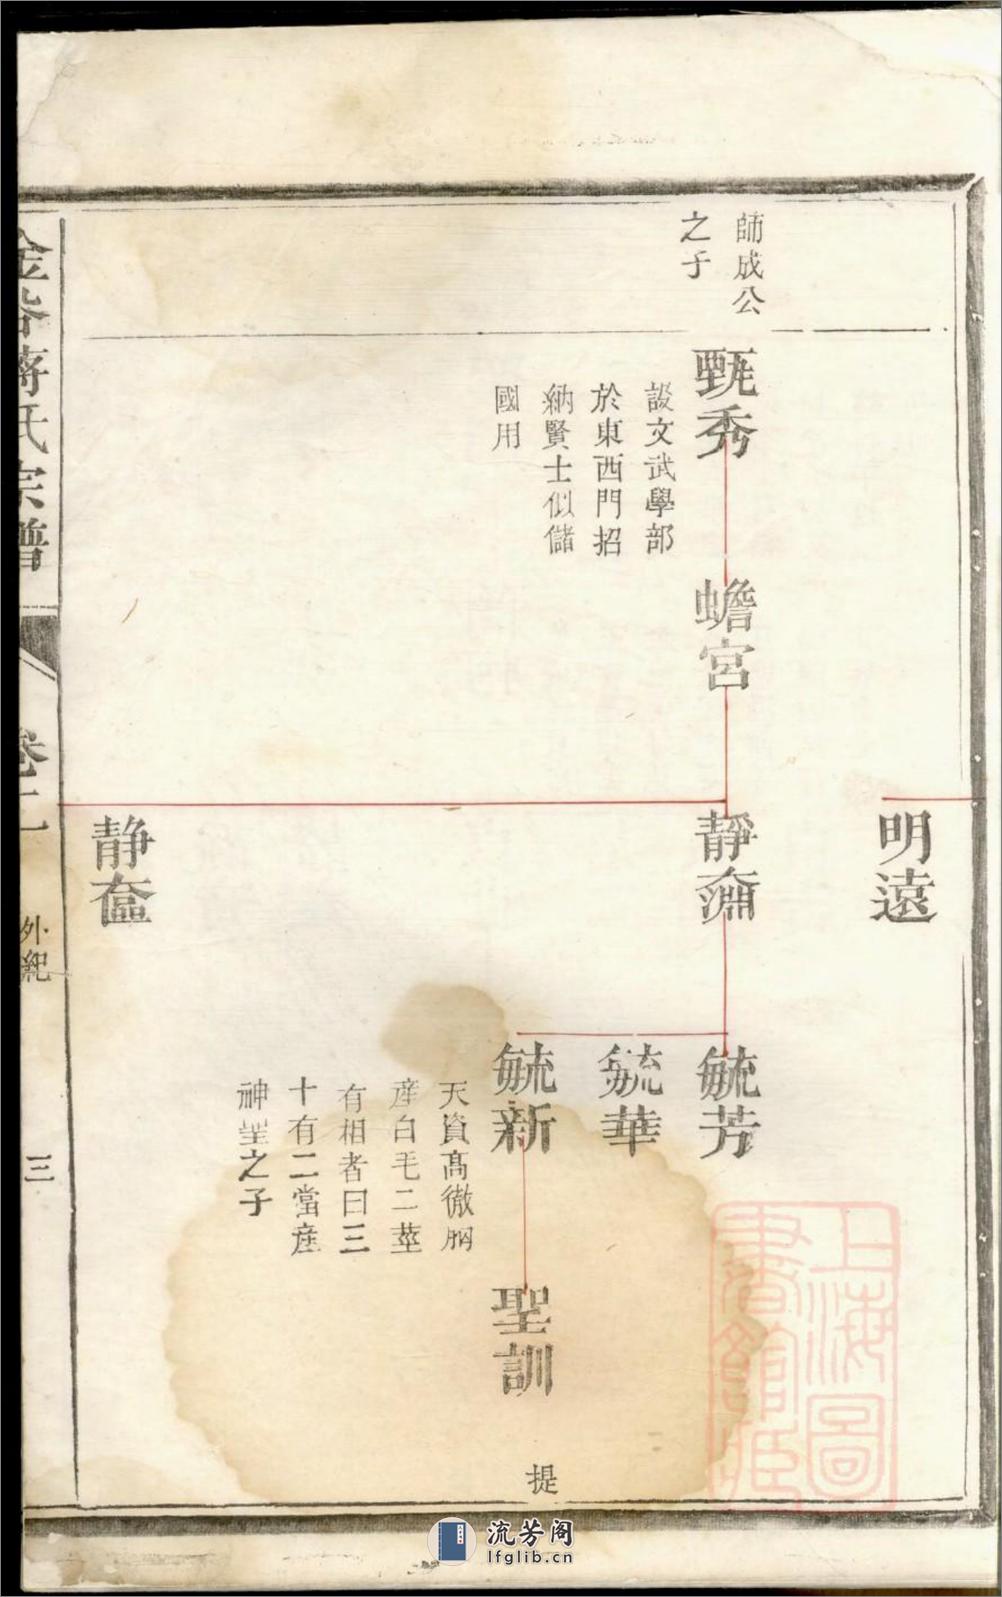 師成公
之子
明遠
甄秀
設文武學部
於東西門招
納賢士似儲
國用
蟾宮
靜奫
毓芳
毓華
毓新
天資高徹胸
産白毛二莖
有相者曰三
十有二當産
神聖之子
聖訓
提
靜奩
蔣氏宗譜
卷二
外紀
三
上海圖
書館藏
流芳阁
lfglib.cn